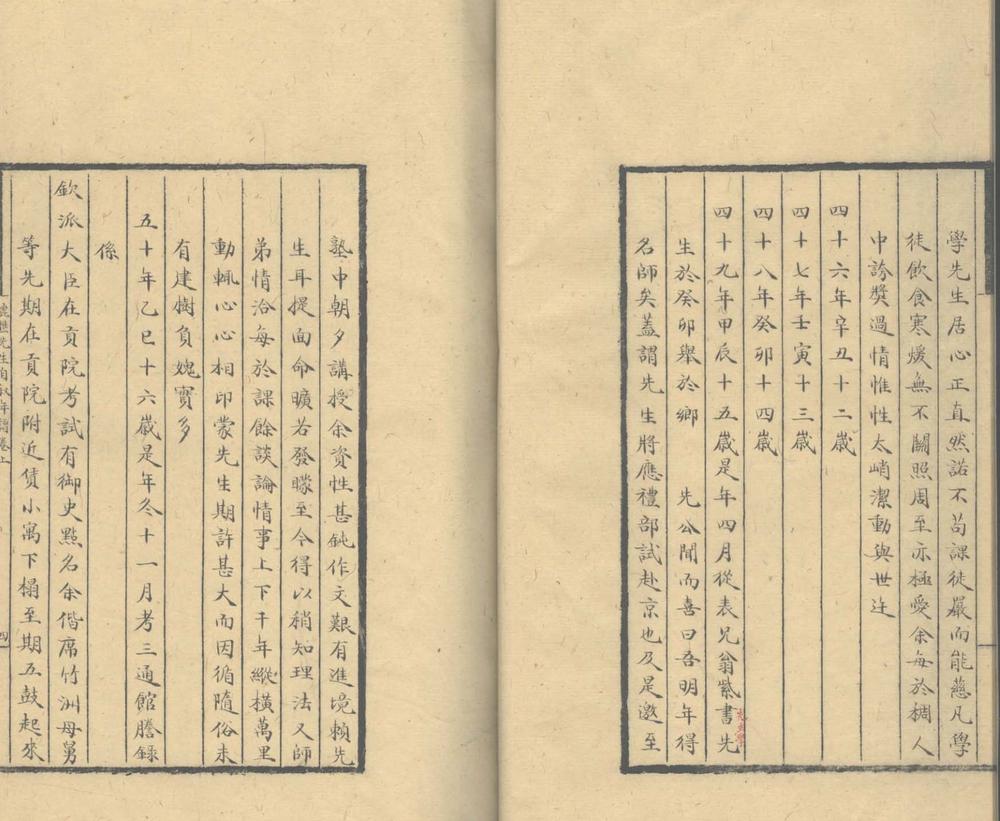 學先生居心正直然諾不苟課徒嚴而能慈凡學
徒飲食寒煖無不關照周至亦極愛余每於稠人
中誇獎過情惟性太峭潔動與世迕
四十六年辛丑十二歲
四十七年壬寅十三歲
四十八年癸卯十四歲
四十九年甲辰十五歲是年四月從表兄翁紫書先
生於癸卯舉於鄉 先公聞而喜曰吾明年得
名師矣蓋謂先生將應禮部試赴京也及是邀至
塾中朝夕講授余資性甚鈍作文艱有進境賴先
生耳提面命曠若發矇至今得以稍知理法又師
弟情洽每於課餘談論情事上下千年縱橫萬里
動輒心心相印蒙先生期許甚大而因循隨俗未
有建樹負媿實多
五十年乙巳十六歲是年冬十一月考三通館謄錄
係
欽派大臣在貢院考試有御史點名余偕席竹洲母舅
等先期在貢院附近賃小寓下榻至期五鼓起來
先生自叙年譜卷上
四